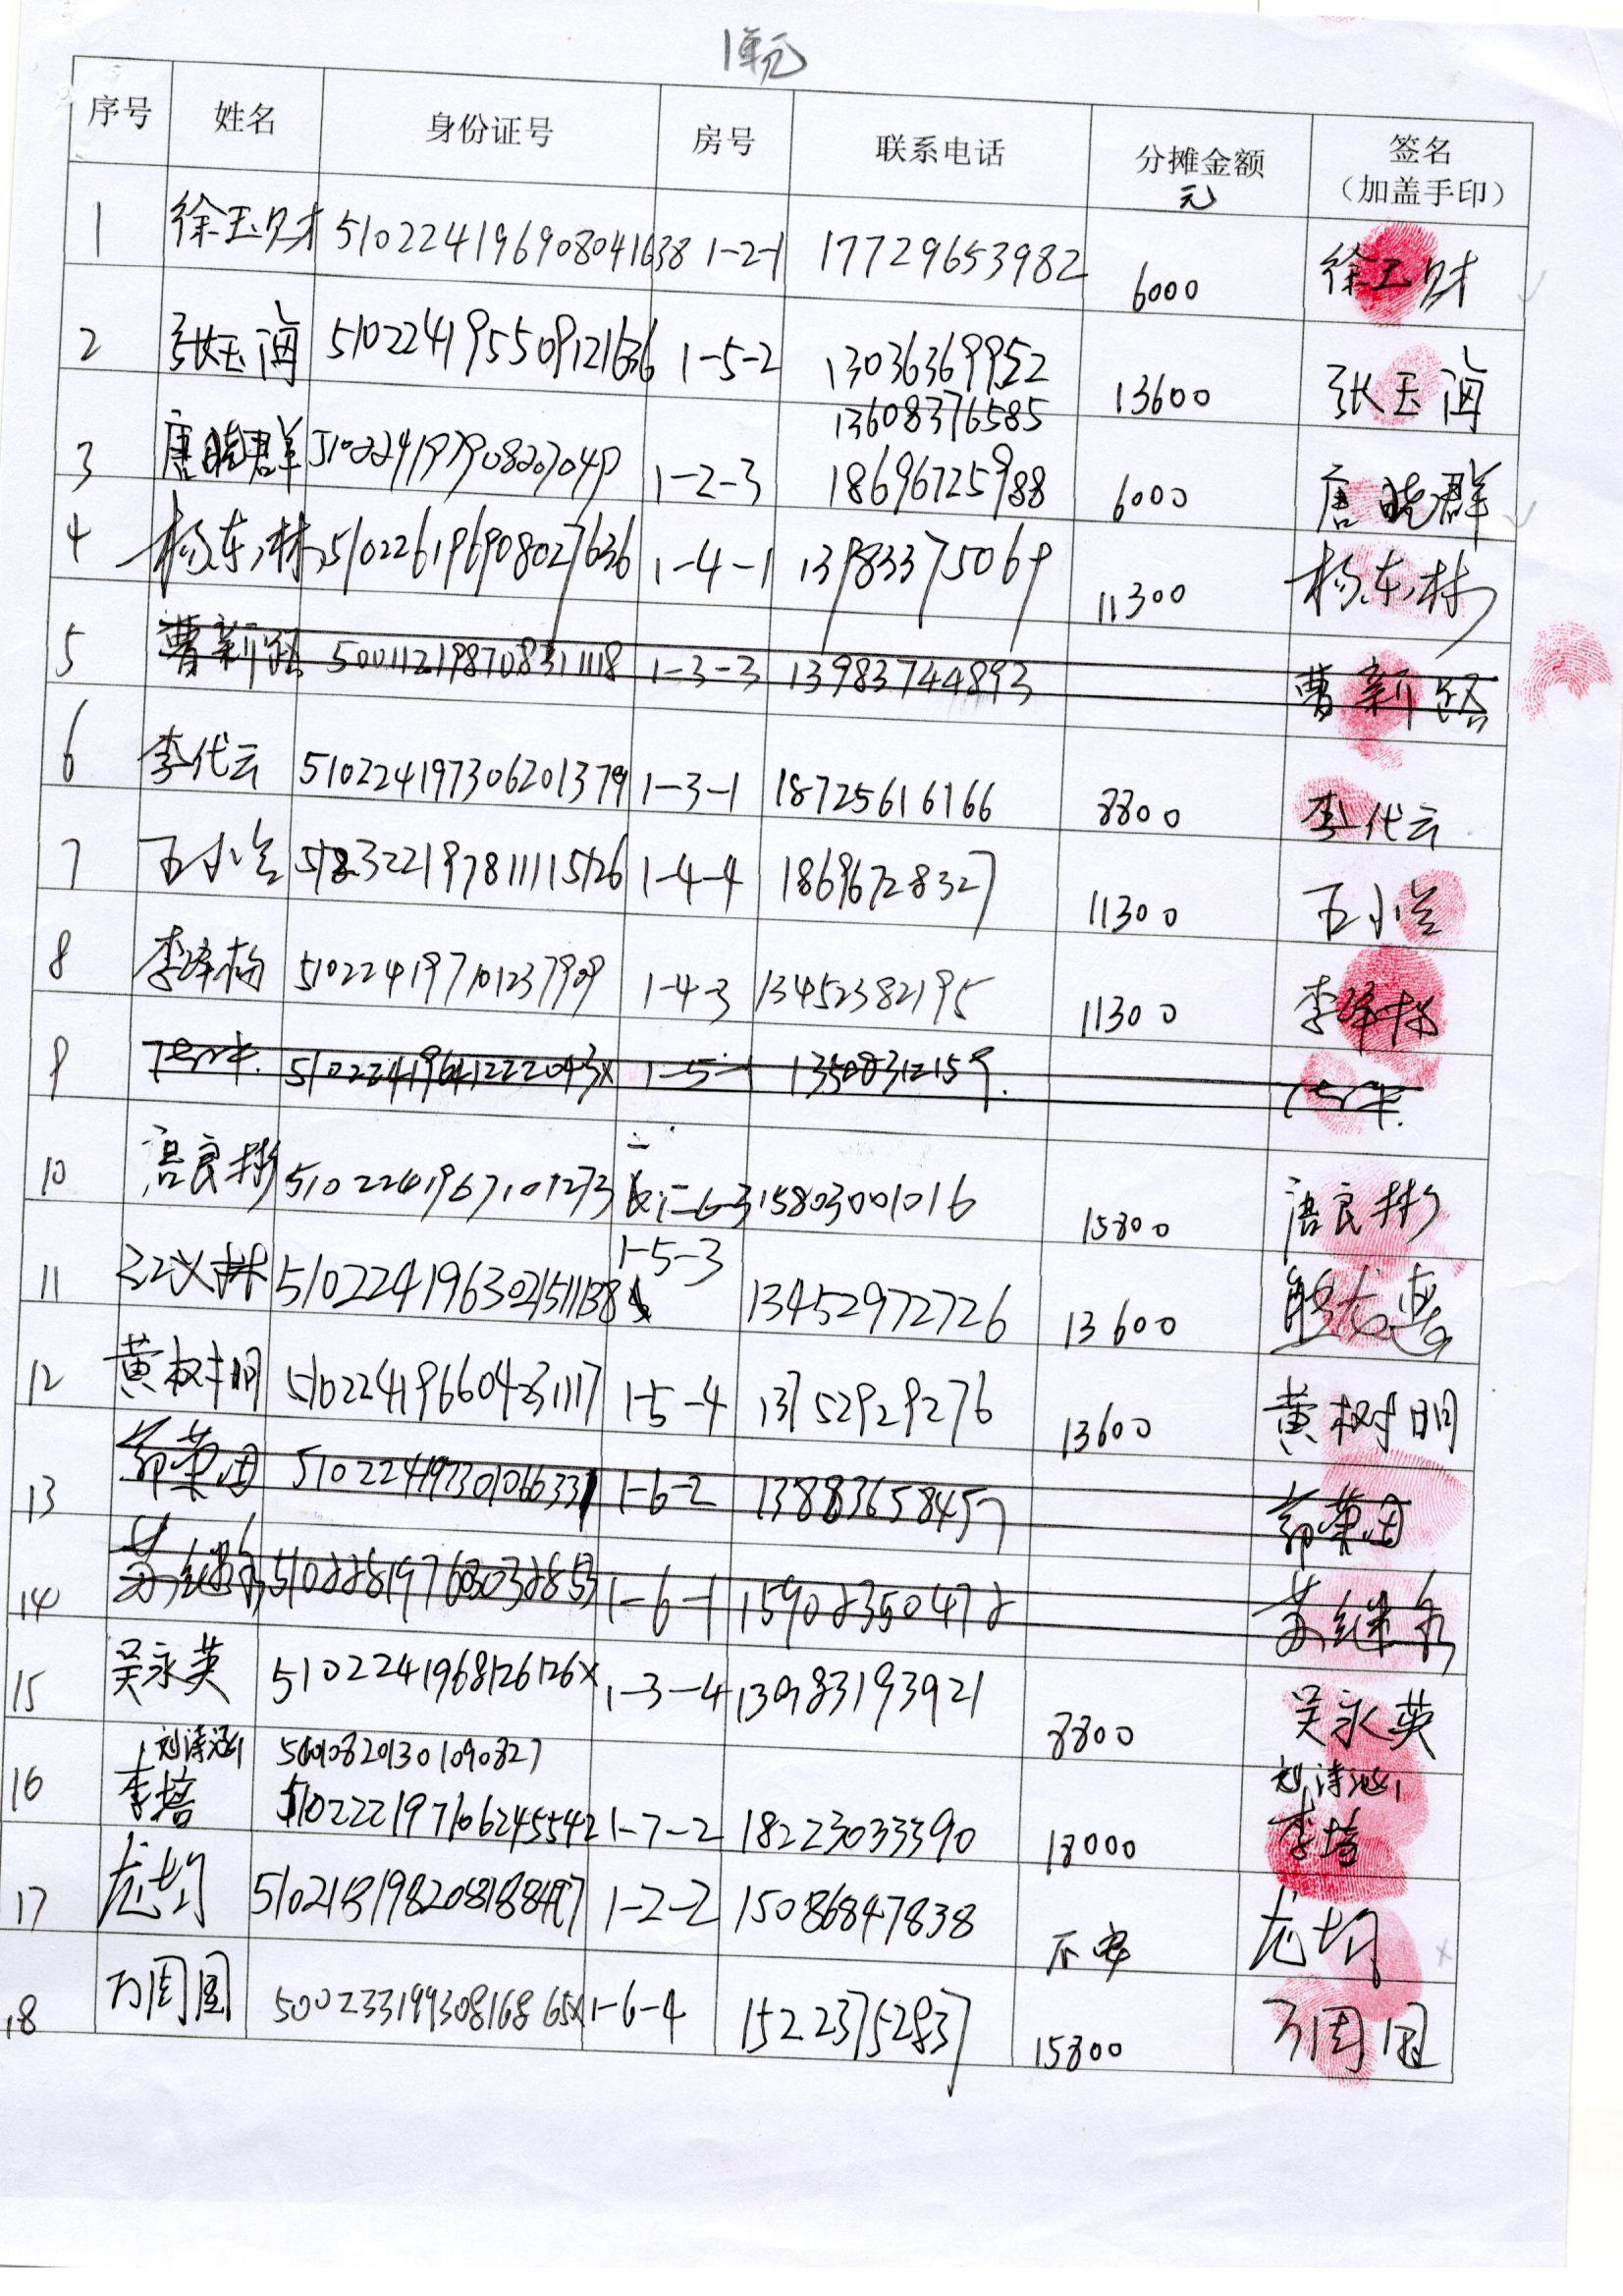 1单元
序号 姓名 身份证号 房号 联系电话 分摊金额 元 签名（加盖手印）
1 徐玉财 510224196908041638 1-2-1 17729653982 6000 徐玉财
2 张玉海 510224195509121636 1-5-2 13036369952 13608376585 13600 张玉海
3 唐晓群 510224197908207049 1-2-3 18696725988 6000 唐晓群
4 杨东林 510226196908027636 1-4-1 13983375069 11300 杨东林
5 曹新路 500112198708311118 1-3-3 13983744893 曹新路
6 李代云 510224197306201379 1-3-1 18725616166 8800 李代云
7 1-4-4 18696728327 11300
8 李泽杨 510224197101237909 1-4-3 13452382195 11300 李泽杨
9 51022419641222043X 1-5-1 13508312159
10 唐良彬 1-6-3 15803001016 15800 唐良彬
11 1-5-3 13452972726 13600
12 黄树明 510224196604231117 1-5-4 13752929276 13600 黄树明
13 1-6-2 13883658457
14 1-6-1 15902350472
15 吴永英 5102241968126126X 1-3-4 13983193921 8800 吴永英
16 刘诗涵 500108201301090827 刘诗涵
李培 510222197606245542 1-7-2 18223033390 18000 李培
17 龙均 1-2-2 15086847838 龙均
18 万周围 50023319930816865X 1-6-4 15223752837 15800 万周围